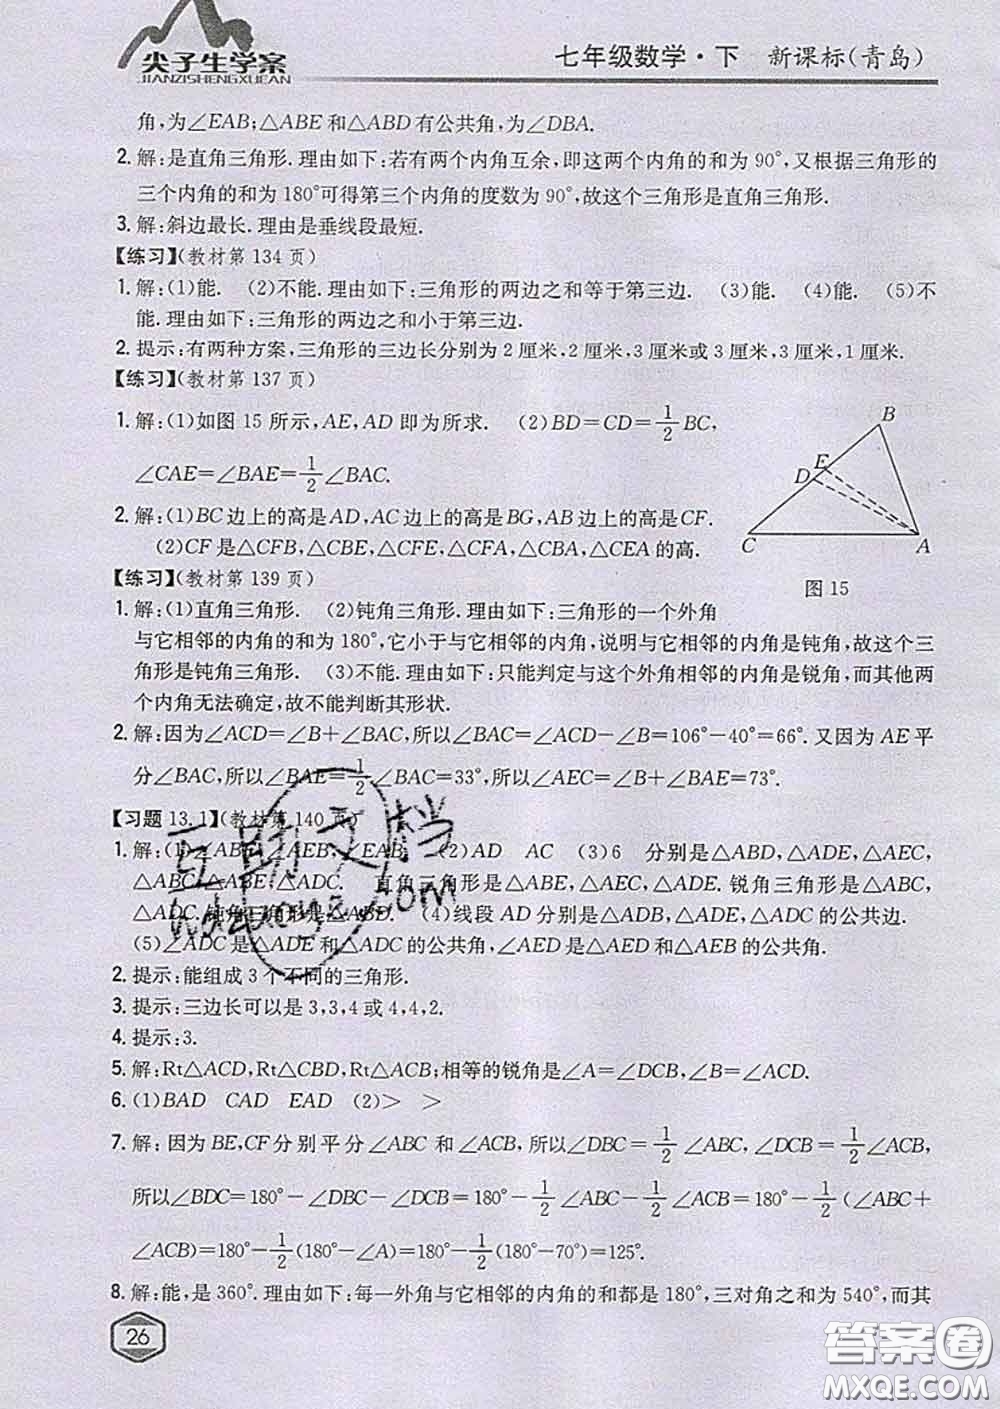 尖子生学案
JIANZISHENGXUEAN
七年级数学·下 新课标(青岛)
角,为∠EAB;△ABE和△ABD有公共角,为∠DBA.
2. 解:是直角三角形.理由如下:若有两个内角互余,即这两个内角的和为90°,又根据三角形的
三个内角的和为180°可得第三个内角的度数为90°,故这个三角形是直角三角形.
3. 解:斜边最长.理由是垂线段最短.
【练习】(教材第134页)
1. 解:(1)能. (2)不能.理由如下:三角形的两边之和等于第三边. (3)能. (4)能. (5)不
能.理由如下:三角形的两边之和小于第三边.
2. 提示:有两种方案,三角形的三边长分别为2厘米,2厘米,3厘米或3厘米,3厘米,1厘米.
【练习】(教材第137页)
1. 解:(1)如图15所示,AE,AD即为所求. (2)BD=CD=1/2 BC,
∠CAE=∠BAE=1/2∠BAC.
2. 解:(1)BC边上的高是AD,AC边上的高是BG,AB边上的高是CF.
(2)CF是△CFB,△CBE,△CFE,△CFA,△CBA,△CEA的高.
B
E
D
C
A
图15
【练习】(教材第139页)
1. 解:(1)直角三角形. (2)钝角三角形.理由如下:三角形的一个外角
与它相邻的内角的和为180°,它小于与它相邻的内角,说明与它相邻的内角是钝角,故这个三
角形是钝角三角形. (3)不能.理由如下:只能判定与这个外角相邻的内角是锐角,而其他两
个内角无法确定,故不能判断其形状.
2. 解:因为∠ACD=∠B+∠BAC,所以∠BAC=∠ACD-∠B=106°-40°=66°.又因为AE平
分∠BAC,所以∠BAE=1/2∠BAC=33°,所以∠AEC=∠B+∠BAE=73°.
【习题13.1】(教材第140页)
1. 解:(1)∠ABE,∠AEB,∠EAB. (2)AD AC (3)6 分别是△ABD,△ADE,△AEC,
△ABC,△ABE,△ADC. 直角三角形是△ABE,△AEC,△ADE.锐角三角形是△ABC,
△ADC.钝角三角形是△ABD. (4)线段AD分别是△ADB,△ADE,△ADC的公共边.
(5)∠ADC是△ADE和△ADC的公共角,∠AED是△AED和△AEB的公共角.
2. 提示:能组成3个不同的三角形.
3. 提示:三边长可以是3,3,4或4,4,2.
4. 提示:3.
5. 解:Rt△ACD,Rt△CBD,Rt△ACB;相等的锐角是∠A=∠DCB,∠B=∠ACD.
6. (1)BAD CAD EAD (2)> >
7. 解:因为BE,CF分别平分∠ABC和∠ACB,所以∠DBC=1/2∠ABC,∠DCB=1/2∠ACB,
所以∠BDC=180°-∠DBC-∠DCB=180°-1/2∠ABC-1/2∠ACB=180°-1/2(∠ABC+
∠ACB)=180°-1/2(180°-∠A)=180°-1/2(180°-70°)=125°.
8. 解:能,是360°.理由如下:每一外角与它相邻的内角的和都是180°,三对角之和为540°,而其
26
互助文档
hdzuoye.com
答案圈
MXQE.COM